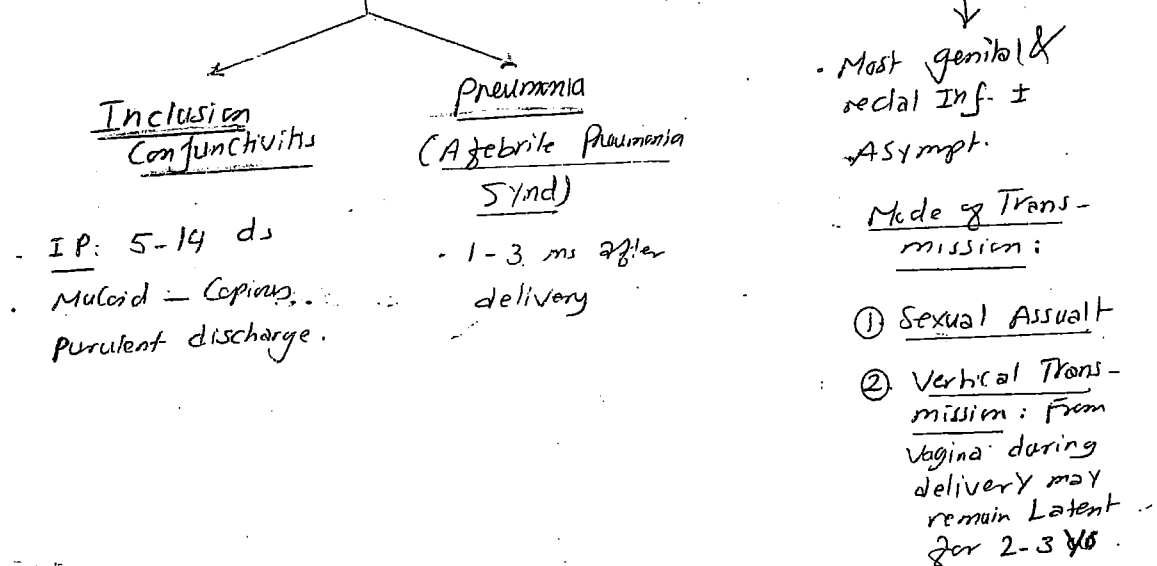 Inclusion
Conjunctivitis
- IP: 5-14 ds
. Mucoid - Copious
purulent discharge.
Pneumonia
(Afebrile Pneumonia
Synd)
. 1-3 ms after
delivery
. Most genital &
rectal Inf. ±
Asympt.
. Mode of Trans-
mission:
① Sexual Assualt
② Vertical Trans-
mission: From
Vagina during
delivery may
remain Latent
for 2-3